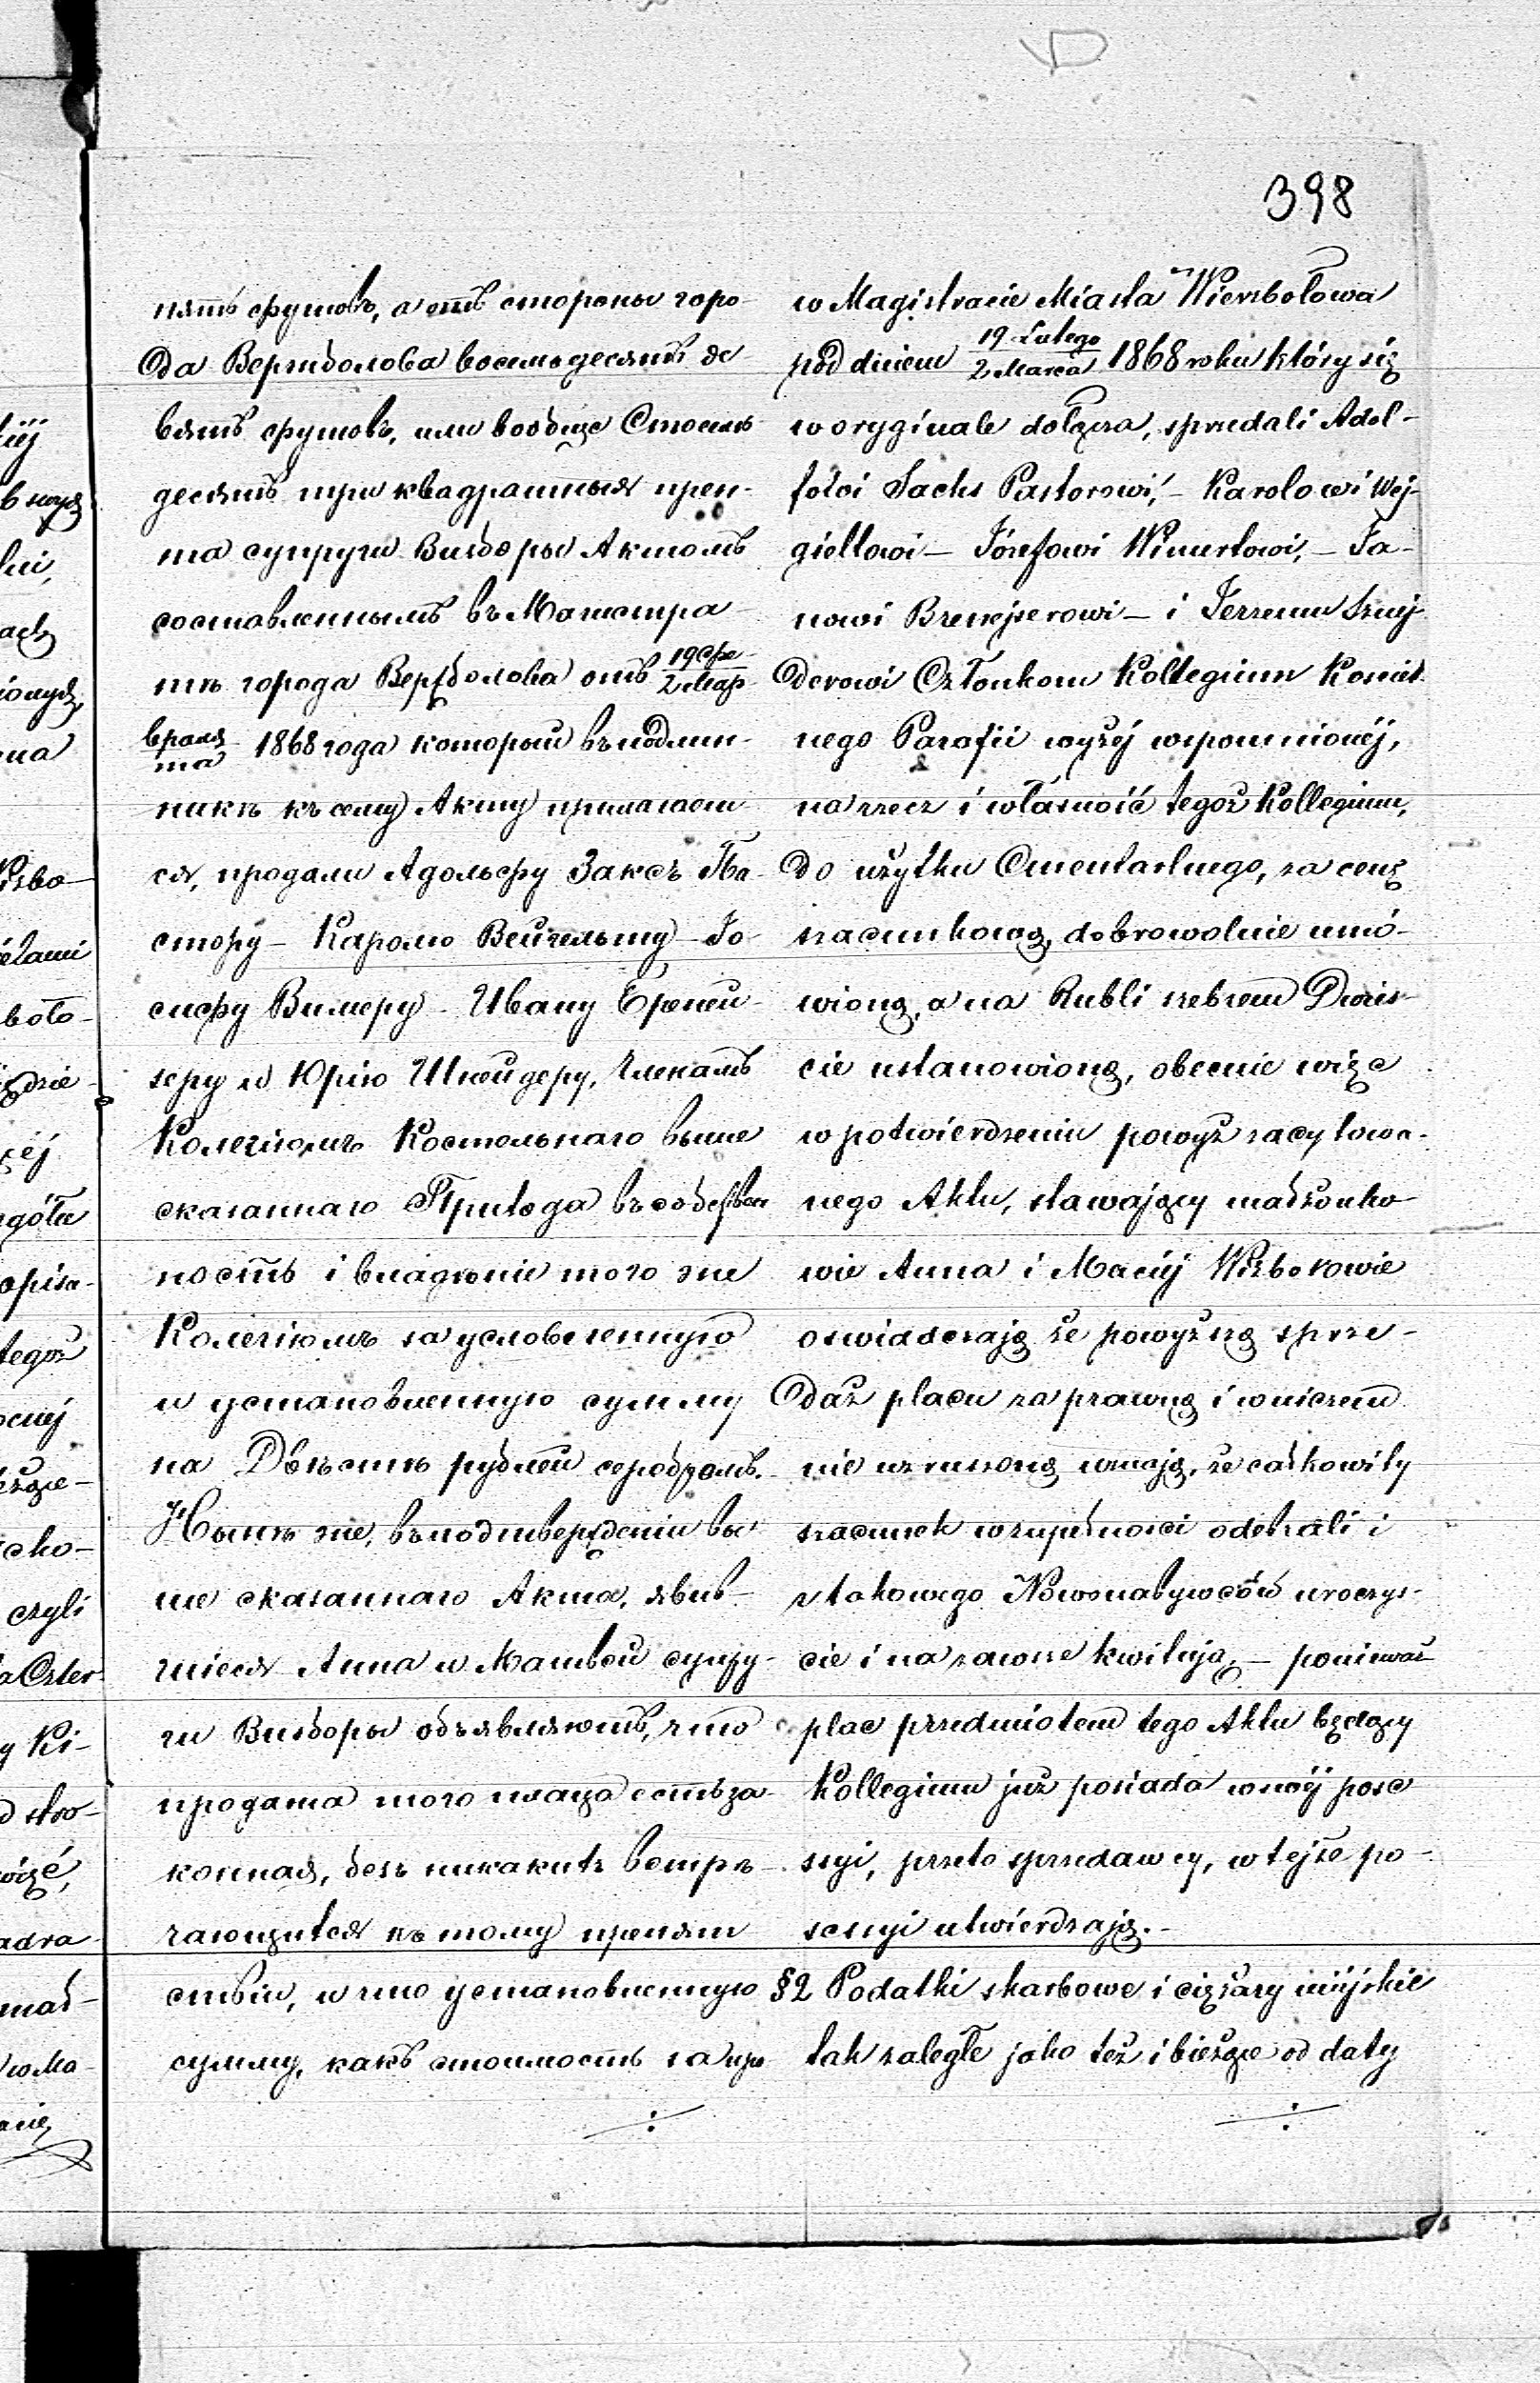 398
пять футовъ, а отъ стороны горо-
да Вержболова восемьдесять де-
вять футовъ, или вообще Стосемь
десять три квадратныя прен-
та супруги Визборы Актомъ
составленнымъ въ Магистра-
тѣ города Вержболова отъ 19 Фе-/2 Мар-
враля/та 1868 года который въ подлин-
никѣ къ сему Акту прилагает
ся, продали Адольфу Заксъ Па-
стору – Каролю Вейгельту – Іо-
сифу Вимеру – Ивану Бреней-
зеру и Юрію Шнейдеру, Членамъ
Колегіюмъ Костельнаго выше
сказаннаго Прихода въ собствен
ность і владѣніе того же
Колегіюмъ за условленную
и установленную сумму
на Двѣсти рублей серебромъ.
Нынѣ же, въ подтвержденіи вы
ше сказаннаго Акта, явив-
шіеся Анна и Матвѣй супру-
ги Визборы объявляютъ, что
продажа того плаца есть за-
конная, безъ никакихъ встрѣ-
чающихся къ тому препят
ствіи, и что установленную
сумму, какъ стоимость за про
w Magistracie Miasta Wierzbołowa
pod dniem 19 Lutego/2 Marca 1868 roku który się
w oryginale dołącza, sprzedali Adol-
fowi Sachs Pastorowi, – Karolowi Wej-
giellowi – Józefowi Wimertowi, – Ja-
nowi Brenejzerowi – i Jerzemu Sznej-
derowi Członkom Kollegium Kościel.
nego Parafii wyżéj wspomnionéj,
na rzecz i własność tegoż Kollegium,
do użytku Cmentarlnego, za cenę
szacunkową, dobrowolnie umó-
wioną, a na Rubli srebrem Dwieś-
cie ustanowioną, obecnie więc
w potwierdzeniu powyż zacytowa-
nego Aktu, stawający małżonko-
wie Anna i Maciéj Wizborowie
oswiadczają że powyższą sprze-
daż placu za prawną i w niczem
nie wzruszoną uznają, że całkowity
szacunek w zupełności odebrali i
z takowego Nowonabywców uroczyś-
cie i na zawsze kwitują, – ponieważ
plac przedmiotem tego Aktu będący
Kollegium już posiada w swéj posе
ssyi, przeto sprzedawcy, w tejże po-
sessyi utwierdzają. –
§ 2 Podatki skarbowe i ciężary miéjskie
tak zaległe jako też i bieżące od daty